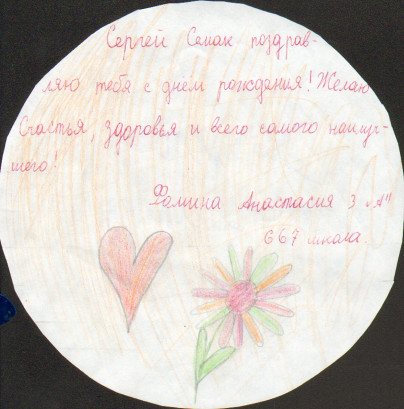 Сергей Семак поздрав-
ляю тебя с днём рождения! Желаю
Счастья, здоровья и всего самого наилуч-
шего!
Фомина Анастасия 3 "А"
667 школа.